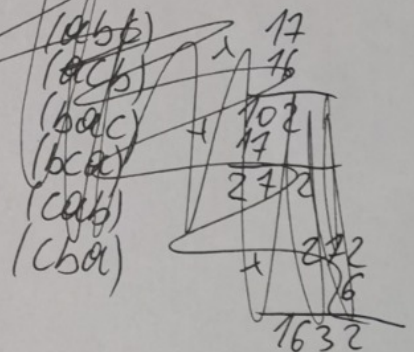 (abc)
(acb)
(bac)
(bca)
(cab)
(cba)
17
16
102
17
272
272
6
1632